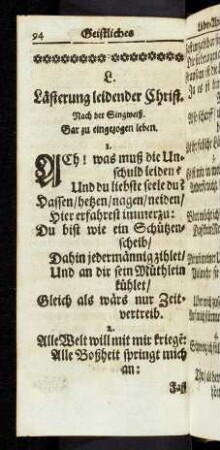 94 Geistliches
L.
Lästerung leidender Christ.
Nach der Singweiß.
Gar zu eingezogen leben.
1.
ACh! was muß die Un-
schuld leiden?
Und du liebste seele du?
Hassen/hetzen/nagen/neiden/
Hier erfahrest immerzu:
Du bist wie ein Schützen-
scheib/
Dahin jedermännig zihlet/
Und an dir sein Müthlein
kühlet/
Gleich als wärs nur Zeit-
vertreib.
2.
Alle Welt will mit mir kriegē:
Alle Boßheit springt mich
an:
Fast